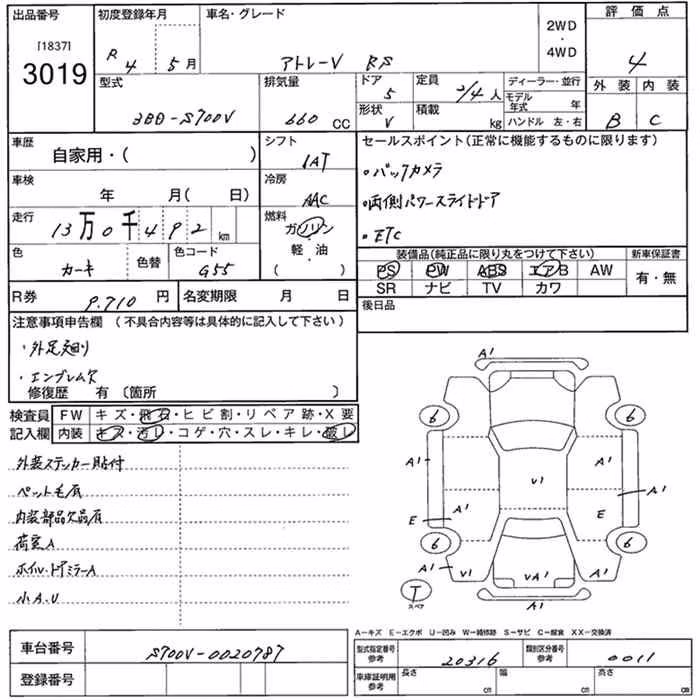 出品番号
[1837]
3019
初度登録年月
R 4 5月
車名・グレード
アトレーV RS
2WD
・
4WD
評価点
4
型式
3BD-S700V
排気量
660 CC
ドア
5
形状
V
定員
2/4人
積載
kg
ディーラー・並行
モデル年式 年
ハンドル 左・右
外装 内装
B C
車歴
自家用・( )
シフト
IAT
セールスポイント(正常に機能するものに限ります)
・バックカメラ
・両側パワースライドドア
・ETC
車検
年 月( 日)
冷房
AAC
走行
13万0千492km
燃料
ガソリン
軽・油
( )
色
カーキ
色替
色コード
G55
装備品(純正品に限り丸をつけて下さい)
PS PW ABS エアB AW
SR ナビ TV カワ
新車保証書
有・無
R券
9.710円
名変期限 月 日
後日品
注意事項申告欄(不具合内容等は具体的に記入して下さい)
・外足廻り
・エンブレム欠
修復歴 有〔箇所 〕
検査員
記入欄
FW キズ・飛石・ヒビ割・リペア跡・X要
内装 キズ・汚レ・コゲ・穴・スレ・キレ・破レ
外装ステッカー貼付
ペット毛有
内装部品欠品有
荷室A
ホイル・ドアミラーA
小A.U
A1
6 6
A1 A1
V1
A1
A1
E E
6 6
A1 V1 VA1 A1
A1
T
スペア
A-キズ E-エクボ U-凹み W-補修跡 S-サビ C-腐食 XX-交換済
車台番号
S700V-0020787
登録番号
型式指定番号
参考
20316
類別区分番号
参考
0011
車庫証明用
参考
長さ cm
幅 cm
高さ cm